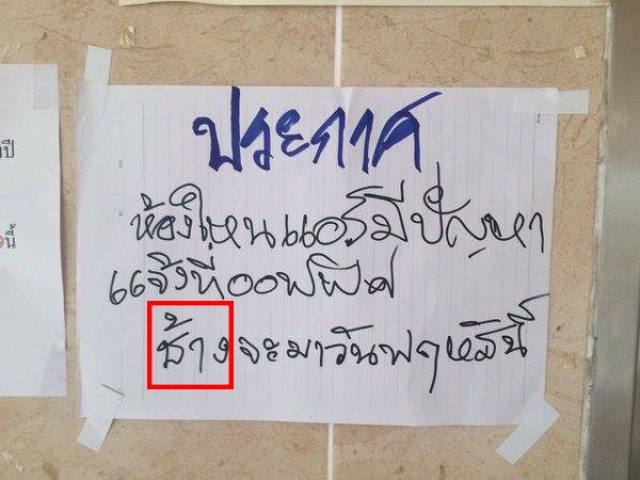 ประกาศ
ห้องใหนแอร์มีปัญหา
แจ้งที่ออฟฟิศ
ช้างจะมาวันพฤหัสนี้